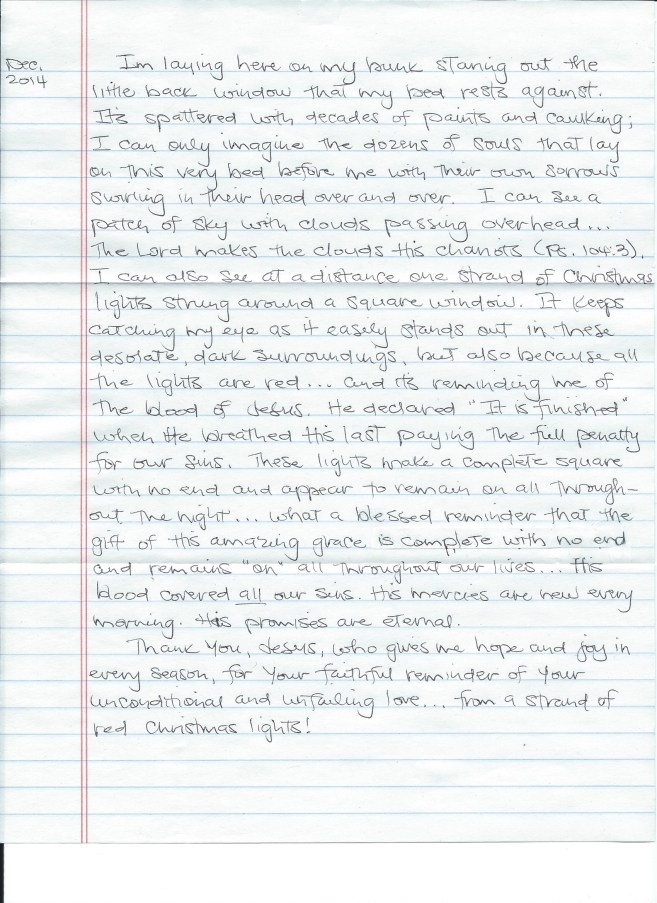 Dec.
2014
Im laying here on my bunk staring out the
little back window that my bed rests against.
It's spattered with decades of paints and caulking;
I can only imagine the dozens of souls that lay
on this very bed before me with their own sorrows
swirling in their head over and over. I can see a
patch of sky with clouds passing overhead...
The Lord makes the clouds His chariots (Ps. 104:3).
I can also see at a distance one strand of Christmas
lights strung around a square window. It keeps
catching my eye as it easily stands out in these
desolate, dark surroundings, but also because all
the lights are red... and its reminding me of
the blood of Jesus. He declared "It is finished"
when He breathed His last paying the full penalty
for our sins. These lights make a complete square
with no end and appear to remain on all through-
out the night... what a blessed reminder that the
gift of His amazing grace is complete with no end
and remains "on" all throughout our lives... His
blood covered all our sins. His mercies are new every
morning. His promises are eternal.
Thank You, Jesus, who gives me hope and joy in
every season, for Your faithful reminder of Your
unconditional and unfailing love... from a strand of
red Christmas lights!